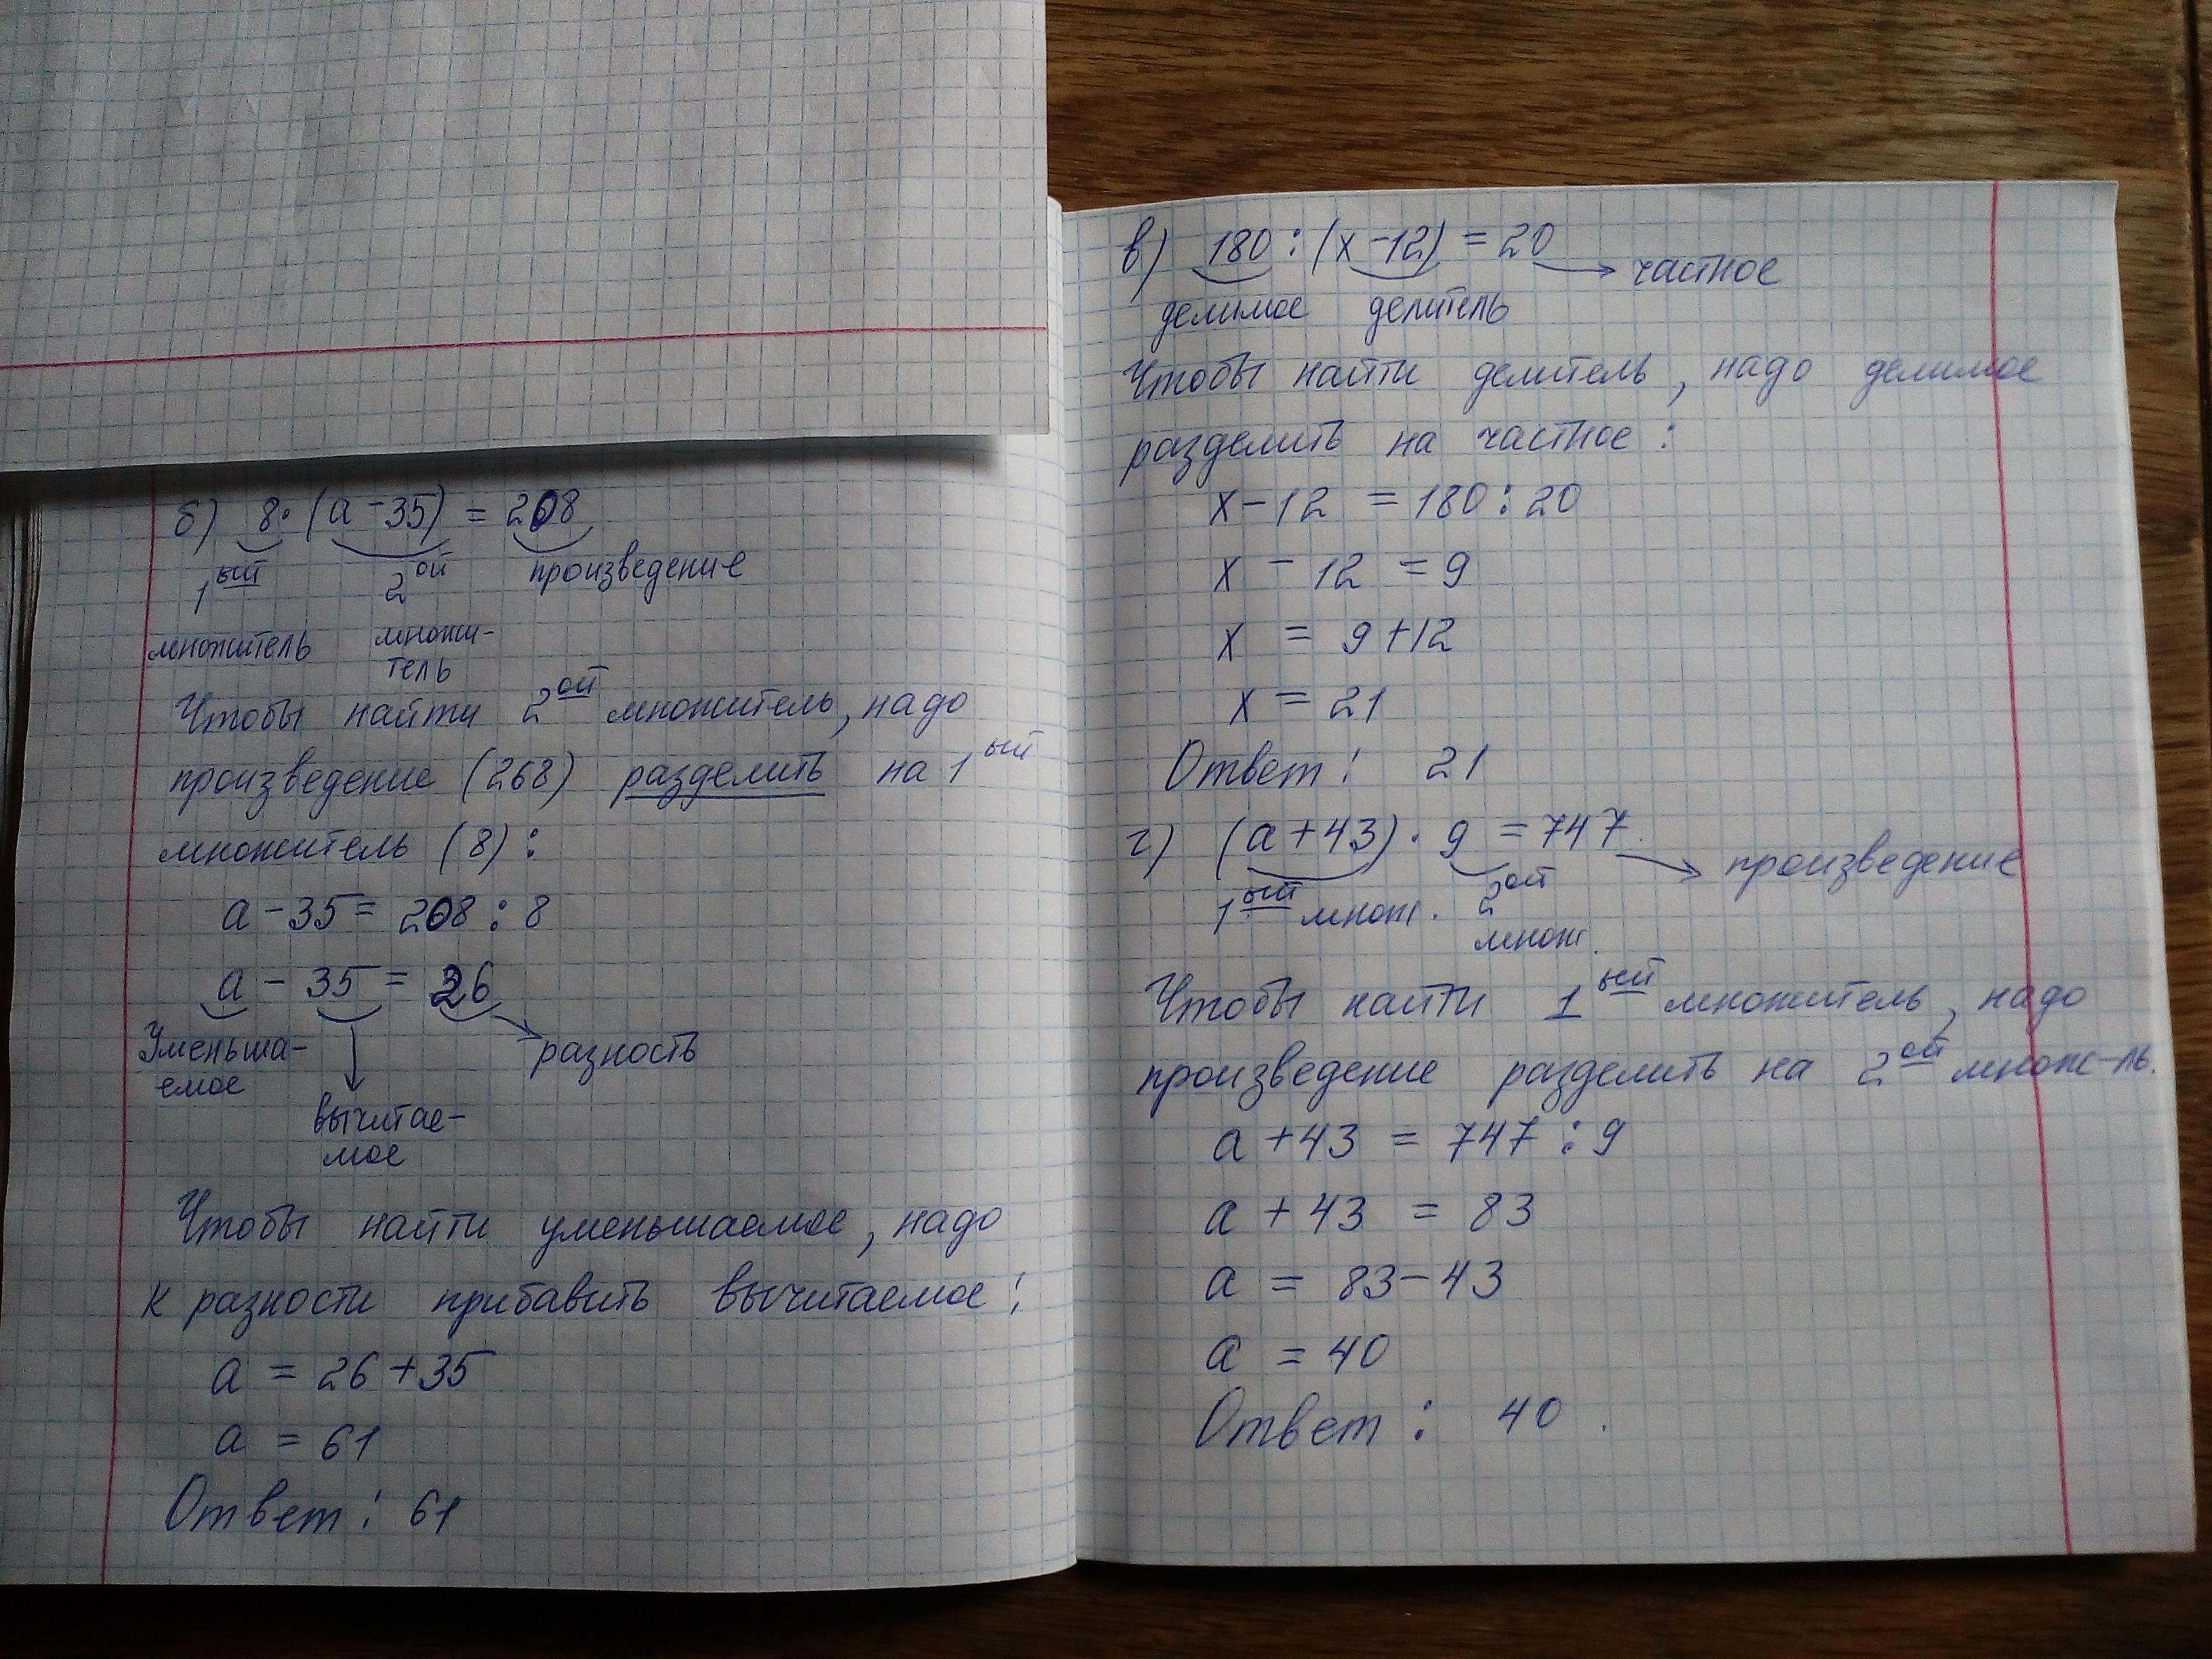 б) 8·(а-35) = 208
1ый 2ой произведение
множитель множи-
тель
Чтобы найти 2ой множитель, надо
произведение (268) разделить на 1ый
множитель (8):
а-35 = 208 : 8
а - 35 = 26
Уменьша-
емое
разность
вычитае-
мое
Чтобы найти уменьшаемое, надо
к разности прибавить вычитаемое:
а = 26+35
а = 61
Ответ: 61
в) 180 : (х-12) = 20 частное
делимое делитель
Чтобы найти делитель, надо делимое
разделить на частное:
х-12 = 180 : 20
х - 12 = 9
х = 9+12
х = 21
Ответ: 21
г) (а+43)· 9 = 747 произведение
1ый множ. 2ой
множ.
Чтобы найти 1ый множитель, надо
произведение разделить на 2ой множ-ль.
а +43 = 747 : 9
а + 43 = 83
а = 83-43
а = 40
Ответ: 40.